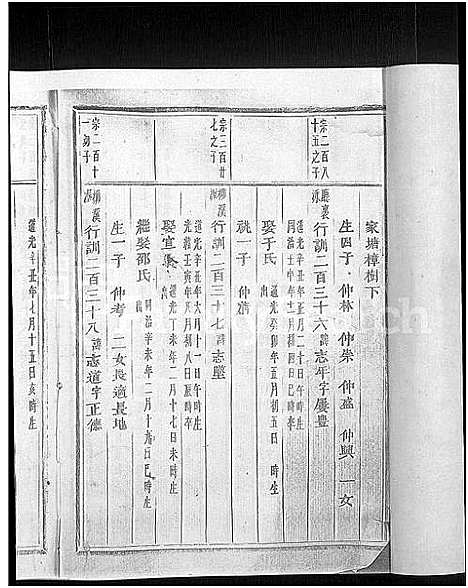 家塘樟樹下
生四子 仲林 仲崇 仲盛 仲興 一女
宗二百八十五之子
行訓二百三十六諱志年字慶豊
道光辛丑年正月二十日午時生
同治壬 年二月 四日巳時卒
娶于氏 道光癸卯年五月初五日 時生
祧一子 仲
宗三百廿七之子
柳溪派
行訓二百三十七諱志璧
道光辛丑年六月十一日午時生
光緒壬寅年八月初八日 時卒
娶宜 氏 道光丁未年二月十七日未時生
繼娶邵氏 同治辛未年二月十九日巳時生
生一子 仲考 二女長適長地
宗二百十一幼子
柳溪派
行訓二百三十八諱志道字正德
道光辛丑年七月十五日亥時生